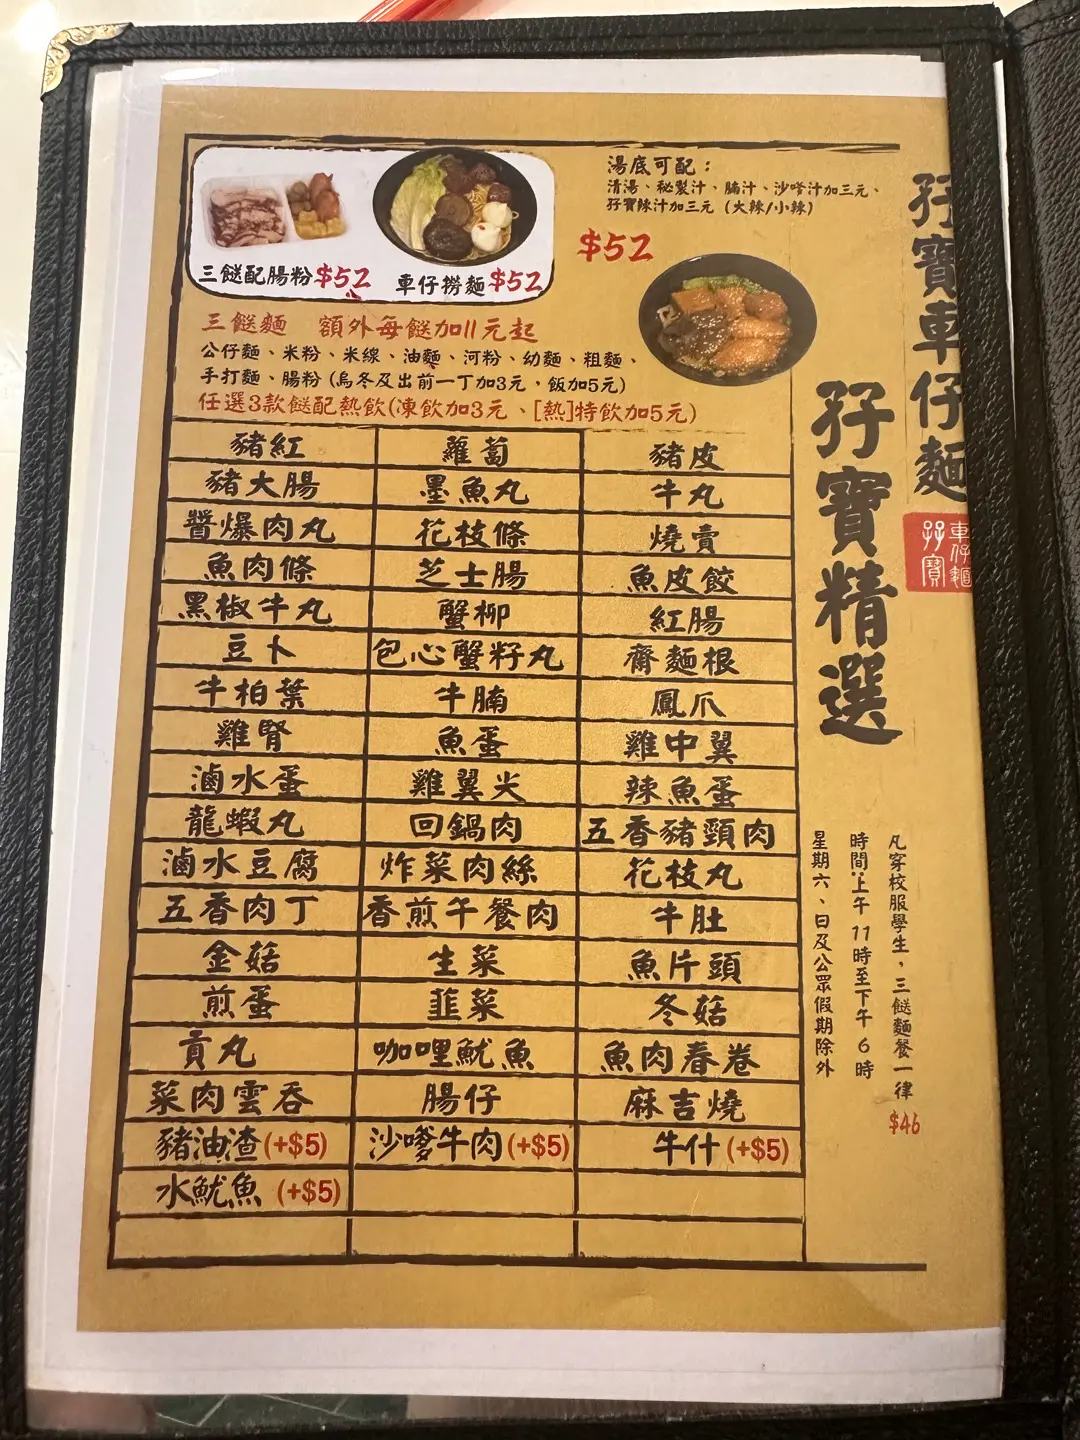 湯底可配：
清湯、秘製汁、腩汁、沙嗲汁加三元、
孖寶辣汁加三元（大辣/小辣）
$52
三餸配腸粉$52
車仔撈麵$52
三餸麵 額外每餸加11元起
公仔麵、米粉、米線、油麵、河粉、幼麵、粗麵、
手打麵、腸粉（烏冬及出前一丁加3元，飯加5元）
任選3款餸配熱飲(凍飲加3元、[熱]特飲加5元)
豬紅 蘿蔔 豬皮
豬大腸 墨魚丸 牛丸
醬爆肉丸 花枝條 燒賣
魚肉條 芝士腸 魚皮餃
黑椒牛丸 蟹柳 紅腸
豆卜 包心蟹籽丸 齋麵根
牛柏葉 牛腩 鳳爪
雞腎 魚蛋 雞中翼
滷水蛋 雞翼尖 辣魚蛋
龍蝦丸 回鍋肉 五香豬頸肉
滷水豆腐 炸菜肉絲 花枝丸
五香肉丁 香煎午餐肉 牛肚
金菇 生菜 魚片頭
煎蛋 韮菜 冬菇
貢丸 咖哩魷魚 魚肉春卷
菜肉雲吞 腸仔 麻吉燒
豬油渣(+$5) 沙嗲牛肉(+$5) 牛什(+$5)
水魷魚(+$5)
孖寶車仔麵
車仔麵
孖寶
孖寶精選
凡穿校服學生，三餸麵餐一律
$46
時間：上午11時至下午6時
星期六、日及公眾假期除外